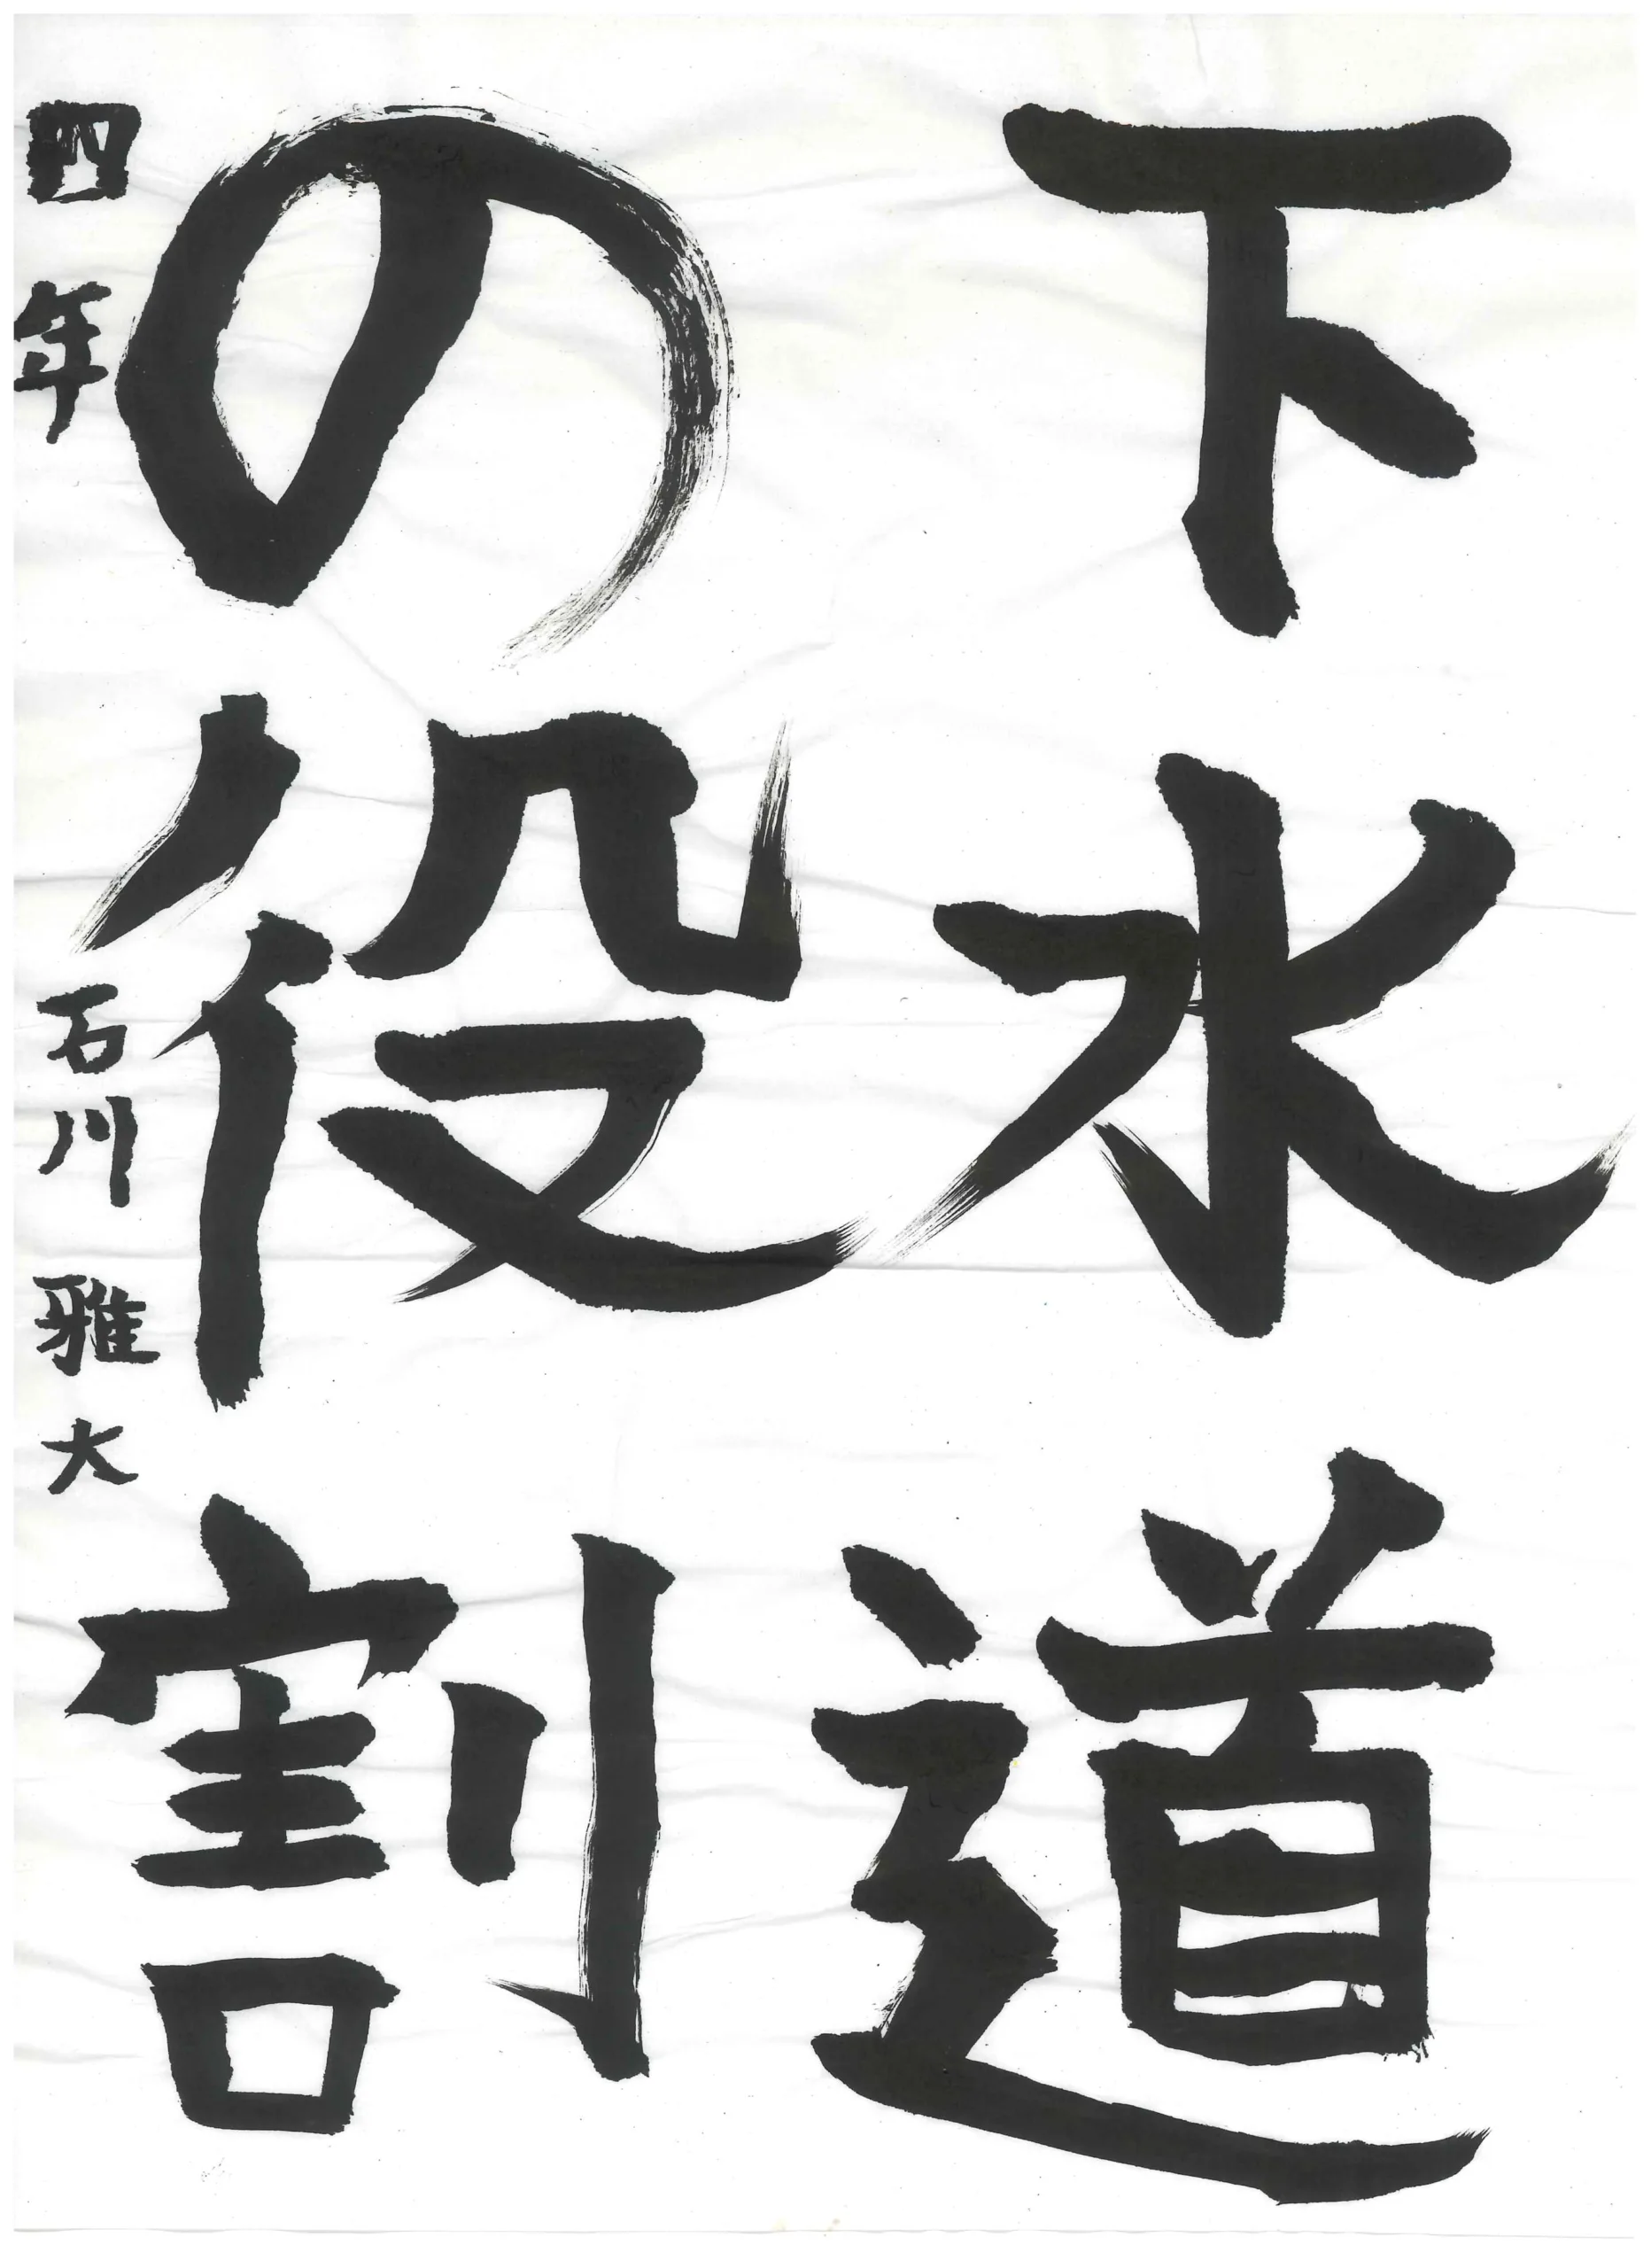 下水道
の役割
四年 石川雅大